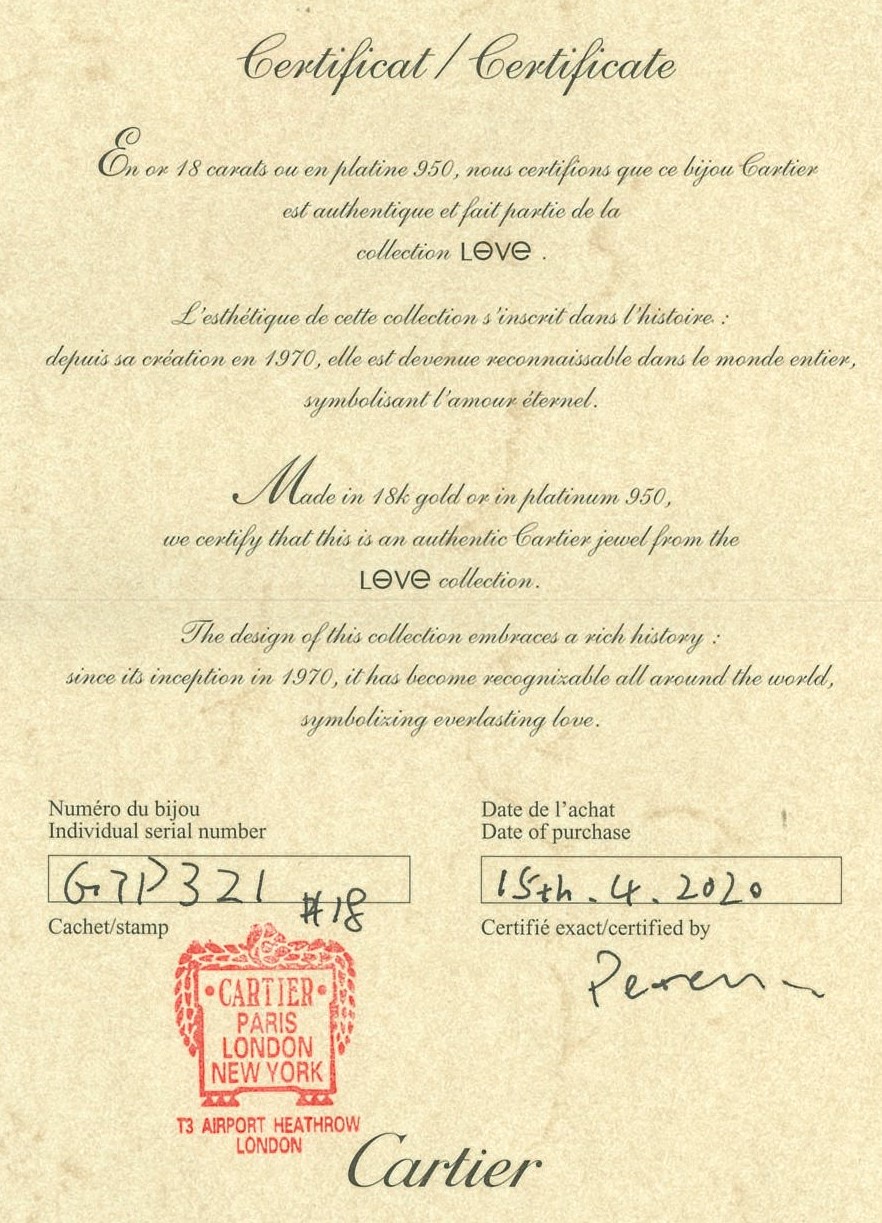 Certificat / Certificate
En or 18 carats ou en platine 950, nous certifions que ce bijou Cartier
est authentique et fait partie de la
collection LOVE .
L'esthétique de cette collection s'inscrit dans l'histoire :
depuis sa création en 1970, elle est devenue reconnaissable dans le monde entier,
symbolisant l'amour éternel.
Made in 18k gold or in platinum 950,
we certify that this is an authentic Cartier jewel from the
LOVE collection.
The design of this collection embraces a rich history :
since its inception in 1970, it has become recognizable all around the world,
symbolizing everlasting love.
Numéro du bijou
Individual serial number
#18
Cachet/stamp
Date de l'achat
Date of purchase
15th.4.2020
Certifié exact/certified by
•CARTIER•
PARIS
LONDON
NEW YORK
T3 AIRPORT HEATHROW
LONDON
Cartier